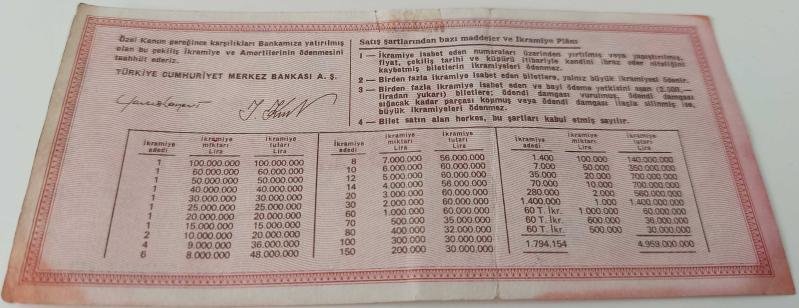 Özel Kanun gereğince karşılıkları Bankamıza yatırılmış
olan bu çekiliş İkramiye ve Amortilerinin ödenmesini
taahhüt ederiz.
TÜRKİYE CUMHURİYET MERKEZ BANKASI A. Ş.
Satış şartlarından bazı maddeler ve İkramiye Plânı
1 — İkramiye isabet eden numaraları üzerinden yırtılmış veya yapıştırılmış,
fiyat, çekiliş tarihi ve küpürü itibariyle kendini ibraz eder niteliğini
kaybetmiş biletlerin ikramiyeleri ödenmez.
2 — Birden fazla ikramiye isabet eden biletlere, yalnız büyük ikramiyesi ödenir.
3 — Birden fazla ikramiye isabet eden ve bayi ödeme yetkisini aşan (2.500,—
liradan yukarı) biletlere; ödendi damgası vurulmuş, ödendi damgası
sığacak kadar parçası kopmuş veya ödendi damgası ilaçla silinmiş ise,
büyük ikramiyeleri ödenmez.
4 — Bilet satın alan herkes, bu şartları kabul etmiş sayılır.
İkramiye adedi İkramiye miktarı Lira İkramiye tutarı Lira
1 100.000.000 100.000.000
1 60.000.000 60.000.000
1 50.000.000 50.000.000
1 40.000.000 40.000.000
1 30.000.000 30.000.000
1 25.000.000 25.000.000
1 20.000.000 20.000.000
1 15.000.000 15.000.000
2 10.000.000 20.000.000
4 9.000.000 36.000.000
6 8.000.000 48.000.000
İkramiye adedi İkramiye miktarı Lira İkramiye tutarı Lira
8 7.000.000 56.000.000
10 6.000.000 60.000.000
12 5.000.000 60.000.000
14 4.000.000 56.000.000
20 3.000.000 60.000.000
30 2.000.000 60.000.000
60 1.000.000 60.000.000
70 500.000 35.000.000
80 400.000 32.000.000
100 300.000 30.000.000
150 200.000 30.000.000
İkramiye adedi İkramiye miktarı Lira İkramiye tutarı Lira
1.400 100.000 140.000.000
7.000 50.000 350.000.000
35.000 20.000 700.000.000
70.000 10.000 700.000.000
280.000 2.000 560.000.000
1.400.000 1.000 1.400.000.000
60 T. İkr. 1.000.000 60.000.000
60 T. İkr. 600.000 36.000.000
60 T. İkr. 500.000 30.000.000
1.794.154 4.959.000.000